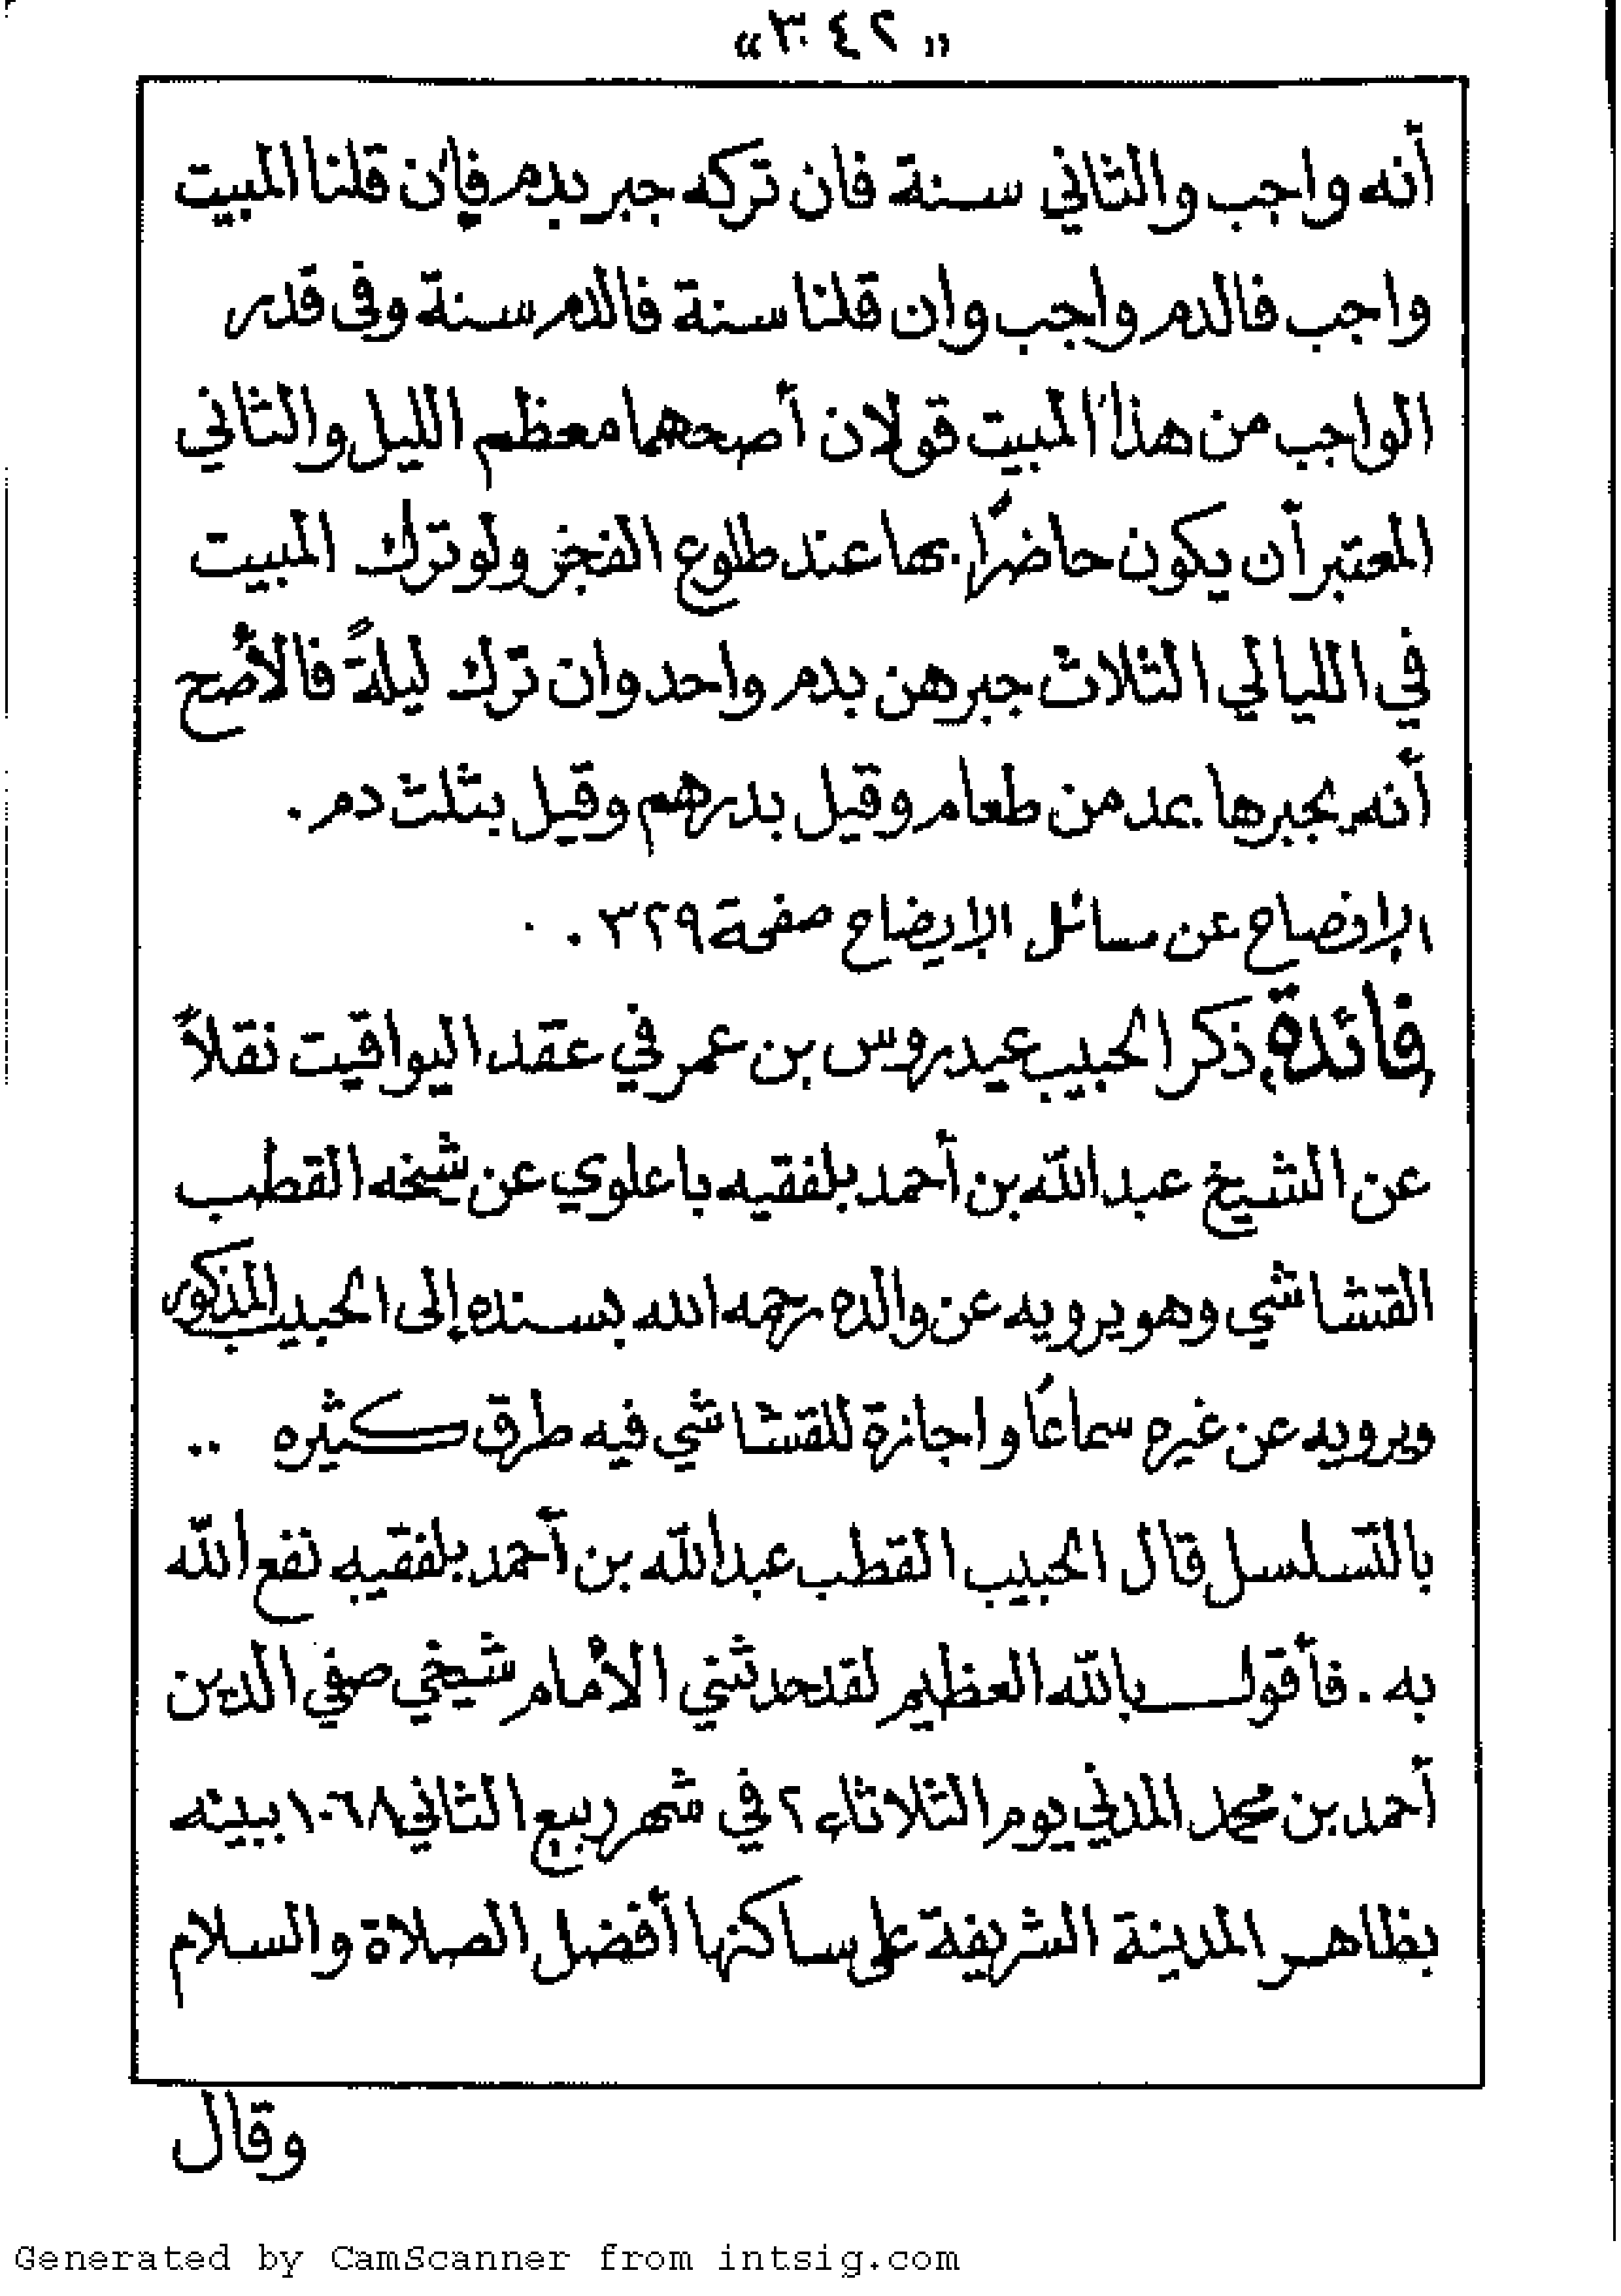 «٣٤٢»
أنه واجب والثاني سنة فان تركه جبر بدم فإن قلنا المبيت
واجب فالدم واجب وان قلنا سنة فالدم سنة وفى قدر
الواجب من هذا المبيت قولان أصحهما معظم الليل والثاني
المعتبر أن يكون حاضرًا بها عند طلوع الفجر ولو ترك المبيت
في الليالي الثلاث جبرهن بدم واحد وان ترك ليلةً فالأصح
أنه يجبرها بمد من طعام وقيل بدرهم وقيل بثلث دم .
الإفصاح عن مسائل الإيضاح صفحة ٣٢٩ .
فائدة، ذكر الحبيب عيدروس بن عمر في عقد اليواقيت نقلاً
عن الشيخ عبدالله بن أحمد بلفقيه باعلوي عن شيخه القطب
القشاشي وهو يرويه عن والده رحمه الله بسنده إلى الحبيب المذكور
ويرويه عن غيره سماعًا واجازة للقشاشي فيه طرق كثيره ..
بالتسلسل قال الحبيب القطب عبدالله بن أحمد بلفقيه نفع الله
به . فأقول بالله العظيم لقد حدثني الأمام شيخي صفي الدين
أحمد بن محمد المدني يوم الثلاثاء ٢ في شهر ربيع الثاني ١٠٦٨ ببيته
بظاهر المدينة الشريفة على ساكنها أفضل الصلاة والسلام
وقال
Generated by CamScanner from intsig.com